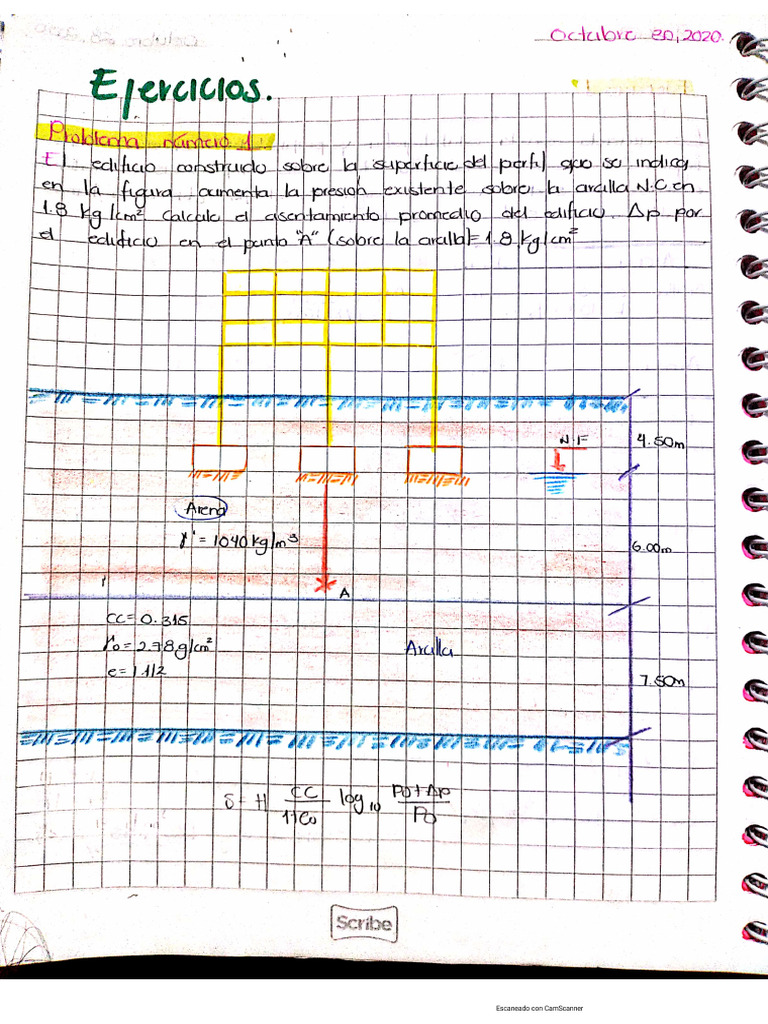 Octubre 20, 2020.
Ejercicios.
Problema número 1.
El edificio construido sobre la superficie del perfil que se indica
en la figura aumenta la presión existente sobre la arcilla N.C en
1.8 kg/cm² Calcule el asentamiento promedio del edificio. Δp por
el edificio en el punto "A" (sobre la arcilla)= 1.8 kg/cm²
N.F
4.50m
Arena
γ' = 1040 kg/m³
6.00m
A
CC= 0.315
γo= 2.78 g/cm²
e= 1.112
Arcilla
7.50m
δ= H CC/1+eo log10 Po+Δp/Po
Scribe
Escaneado con CamScanner